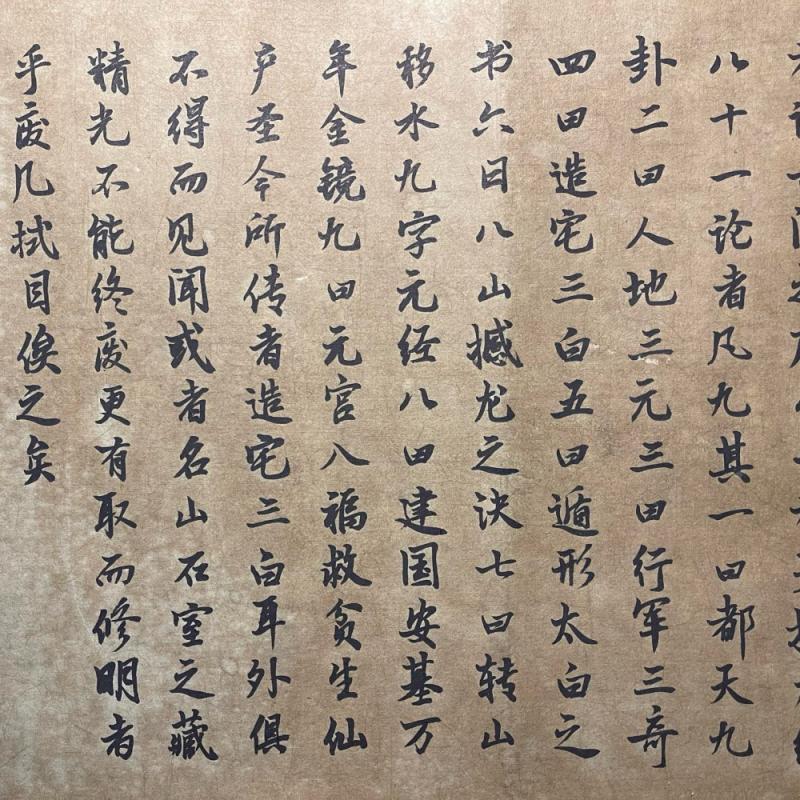 八十一论者凡九其一曰都天九
卦二曰人地三元三曰行军三奇
四曰造宅三白五曰遁形太白之
书六曰八山撼龙之诀七曰转山
移水九字元经八曰建国安基万
年金镜九曰元宫八福救贫生仙
产圣今所传者造宅三白耳外俱
不得而见闻或者名山石室之藏
精光不能终废更有取而修明者
乎废几拭目俟之矣